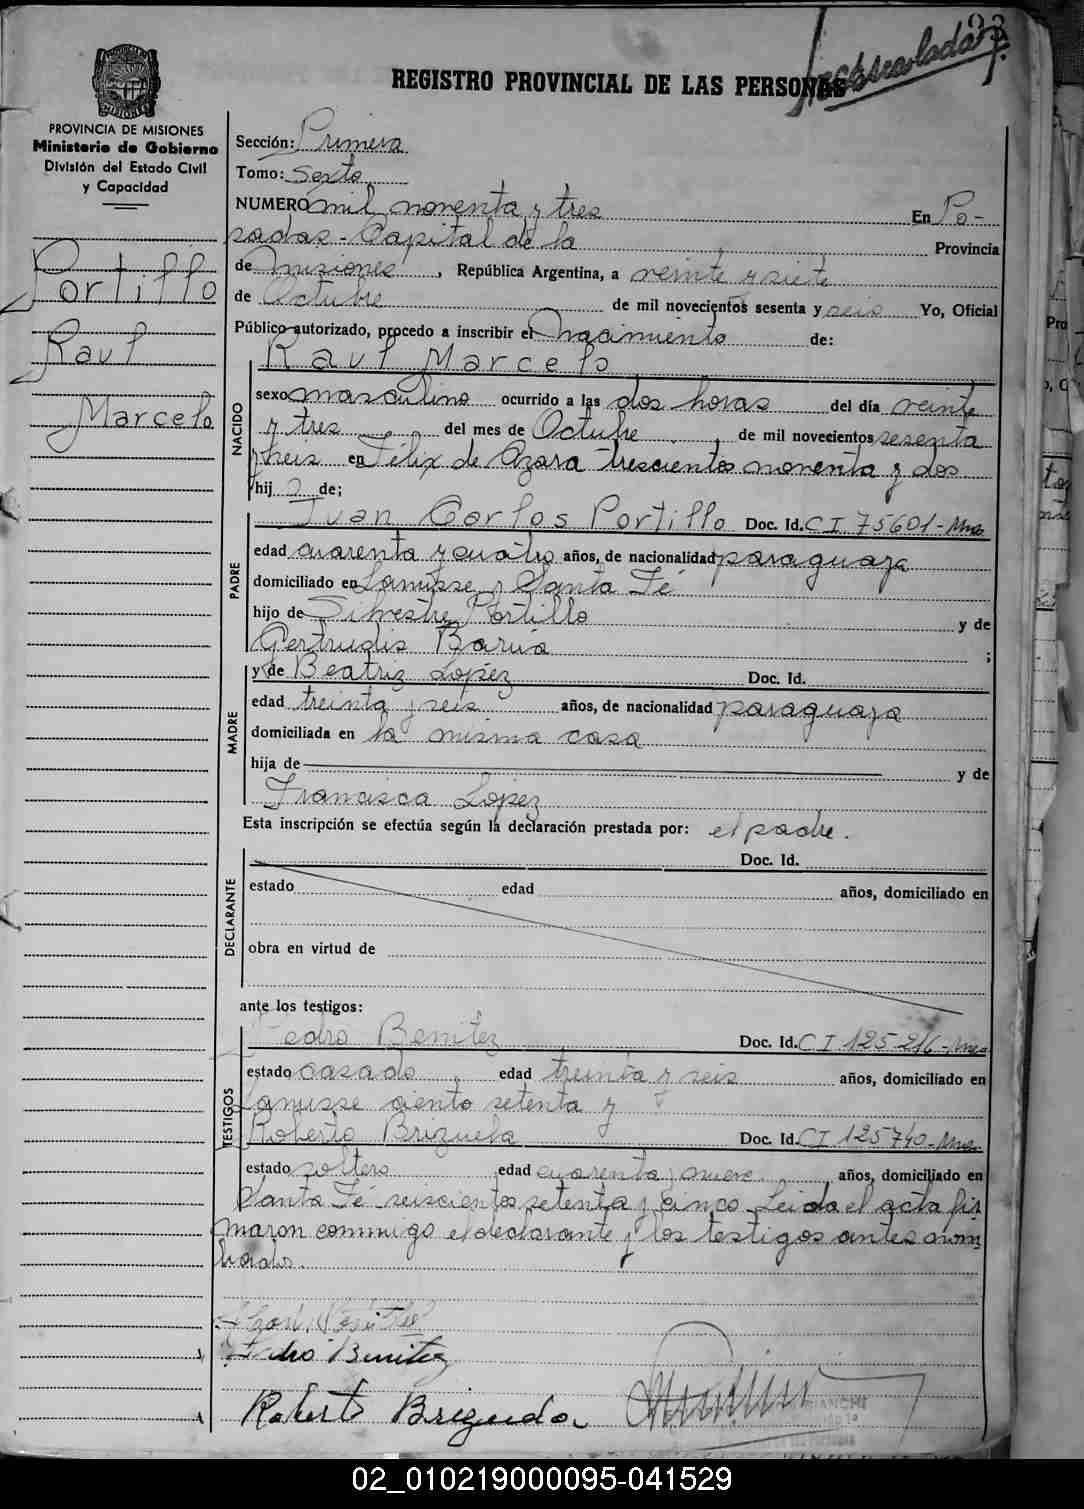 REGISTRO PROVINCIAL DE LAS PERSONAS
PROVINCIA DE MISIONES
Ministerio de Gobierno
División del Estado Civil
y Capacidad
Portillo
Raul
Marcelo
Sección: Primera
Tomo: Sexto
NUMERO mil noventa y tres En Po-
sadas - Capital de la Provincia
de Misiones, República Argentina, a veinte y siete
de Octubre de mil novecientos sesenta y seis Yo, Oficial
Público autorizado, procedo a inscribir el Nacimiento de:
Raul Marcelo
NACIDO
sexo masculino ocurrido a las dos horas del día veinte
y tres del mes de Octubre, de mil novecientos sesenta
y seis en Félix de Azara trescientos noventa y dos
hij o de;
PADRE
Juan Carlos Portillo Doc. Id. C I 75601-Mnes
edad cuarenta y cuatro años, de nacionalidad paraguaya
domiciliado en Lanusse y Santa Fé
hijo de Silvestre Portillo y de
Gertrudis Barúa ;
MADRE
y de Beatriz Lopez Doc. Id.
edad treinta y seis años, de nacionalidad paraguaya
domiciliada en la misma casa
hija de y de
Francisca Lopez
Esta inscripción se efectúa según la declaración prestada por: el padre.
DECLARANTE
Doc. Id.
estado edad años, domiciliado en
obra en virtud de
ante los testigos:
TESTIGOS
Pedro Benitez Doc. Id. C I 125-216-Mnes
estado casado edad treinta y seis años, domiciliado en
Lanusse ciento setenta y
Roberto Brizuela Doc. Id. C I 125740-Mnes
estado soltero edad cuarenta y nueve años, domiciliado en
Santa Fé seiscientos setenta y cinco. Leida el acta fir
maron conmigo el declarante y los testigos antes nom
brados.
Pedro Benitez
Roberto Brizuela
02_010219000095-041529